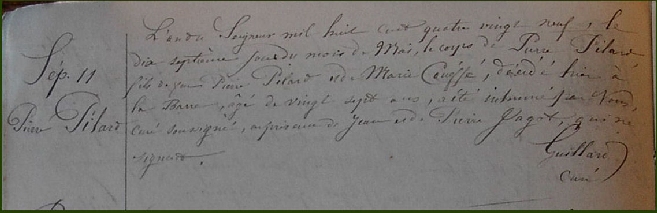 Sép. 11
Pierre Pilard
L'an du Seigneur mil huit cent quatre vingt neuf, le
dix septième jour du mois de Mai, le corps de Pierre Pilard
fils de feu Pierre Pilard et de Marie, décédé hier à
la Barre, âgé de vingt sept ans, a été inhumé par Nous,
curé soussigné, en présence de Jean et de Pierre, qui ne
signent.
Guillard
curé